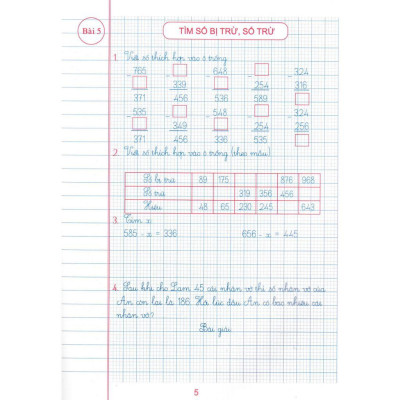 Bài 5
TÌM SỐ BỊ TRỪ, SỐ TRỪ
1. Viết số thích hợp vào ô trống
- 765 - - 648 - - 324
339 254 316
371 456 536 589
- 535 - - 548 - - 324
349 254 256
371 456 536 254
2. Viết số thích hợp vào ô trống (theo mẫu)
Số bị trừ 89 175 876 968
Số trừ 319 356 456
Hiệu 48 65 290 245 643
3. Tìm x:
585 - x = 336 656 - x = 445
4. Sau khi cho Lam 45 cái nhãn vở thì số nhãn vở của
An còn lại là 186. Hỏi lúc đầu An có bao nhiêu cái
nhãn vở?
Bài giải
5